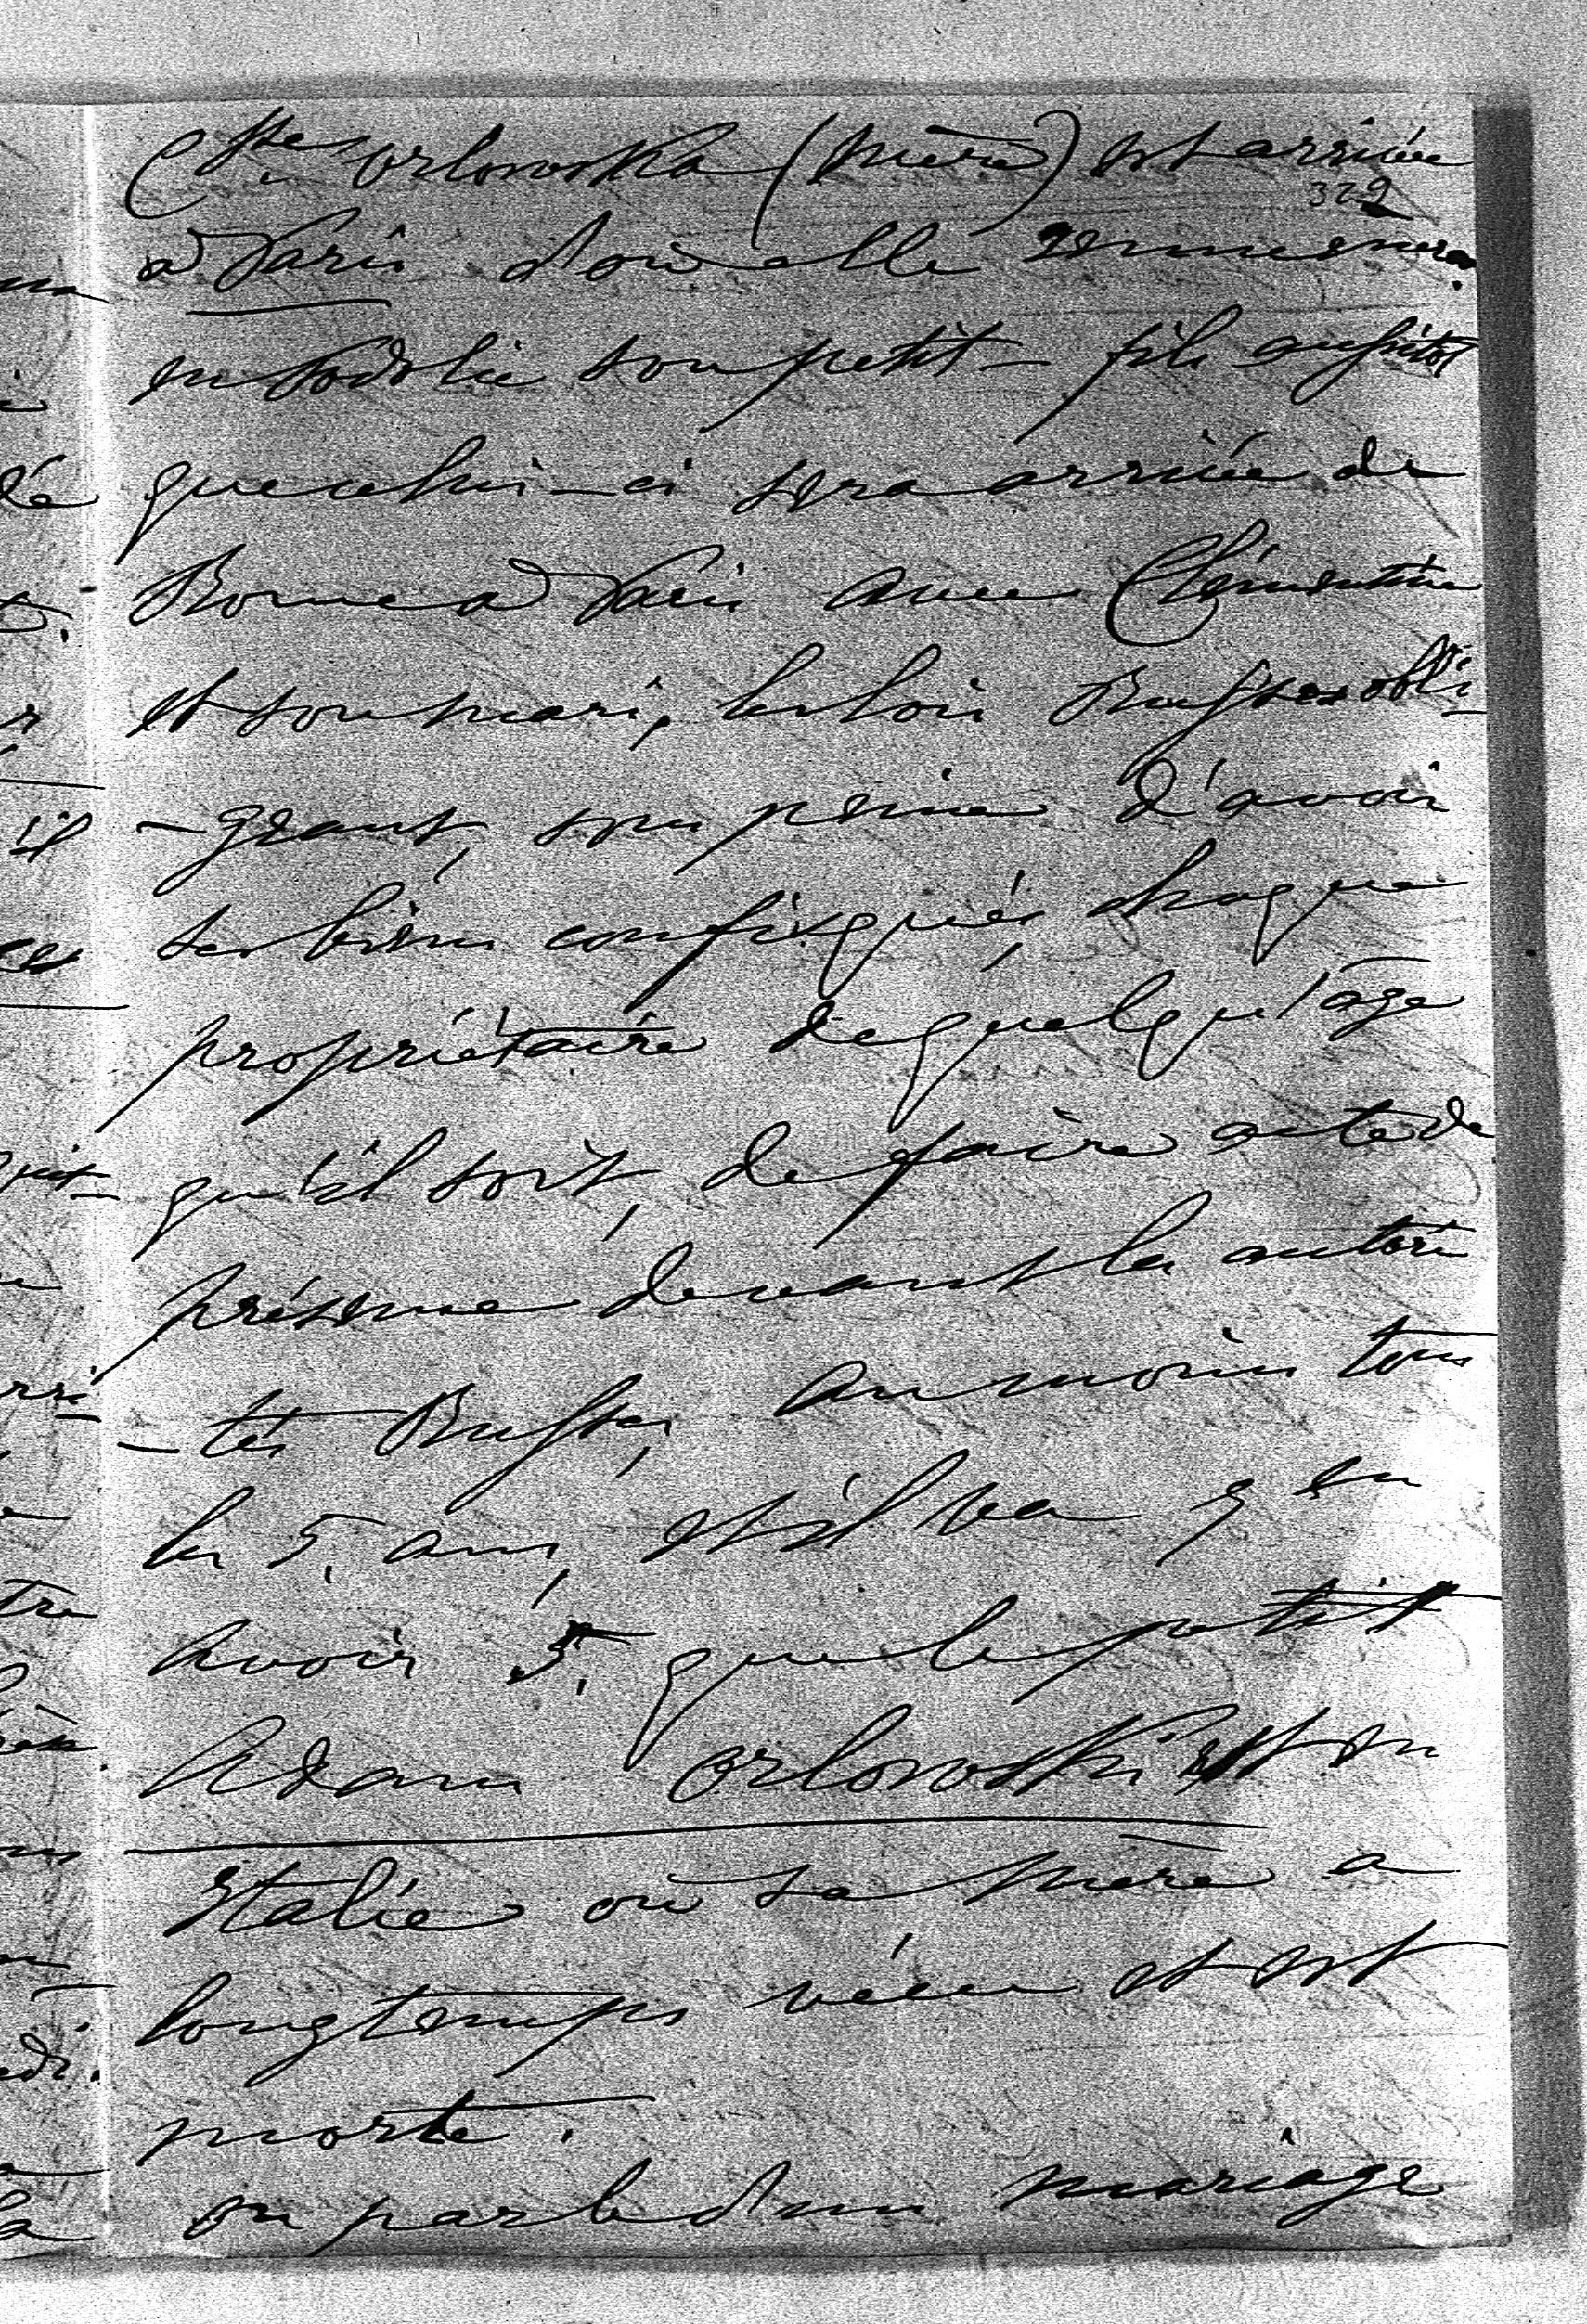 Ctesse Orlowska (mère) est arrivée
329
à Paris d'où elle remmenera
en Podolie son petit-fils aussitôt
que celui-ci sera arrivée de
Rome à Paris avec Clémentine
et son mari, les lois Russes obli-
-geant, sous peine d'avoir
ses biens confisqués, chaque
propriétaire de quelqu'âge
qu'il soit, de faire acte de
présence devant les autori
-tés Russes, au moins tous
les 5. ans, et il va y en
avoir 5. que le petit
Adam Orlowski est en
Italie où sa mère a
longtemps vécu et est
morte.
on parle d'un mariage